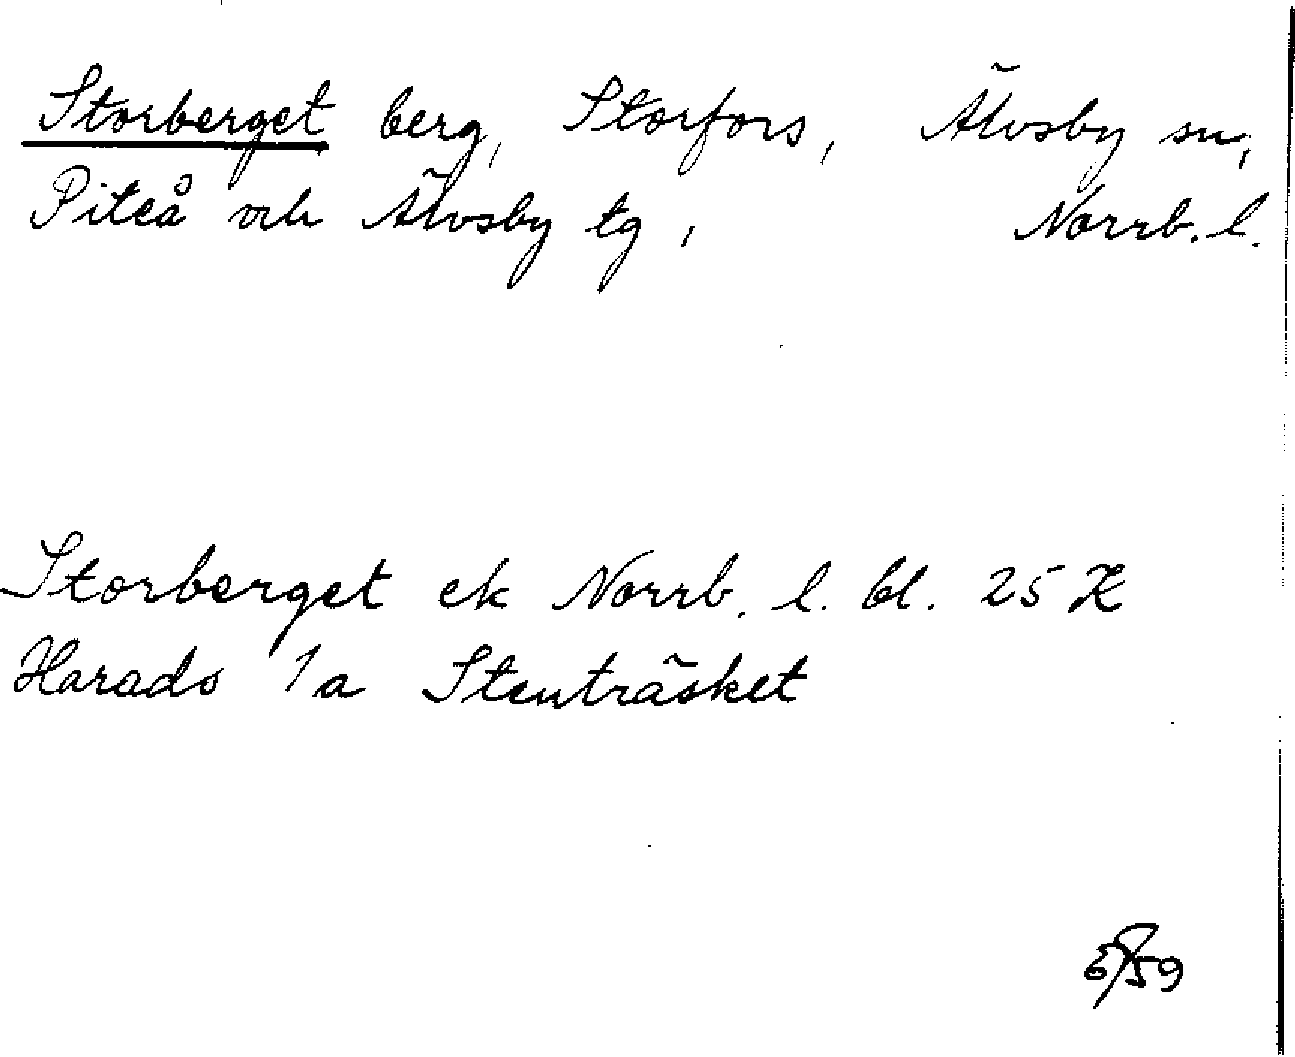 Storberget berg, Storfors, Älvsby sn,
Piteå och Älvsby tg, Norrb. l.
Storberget ek Norrb. l. bl. 25 K
Harads 1a Stenträsket